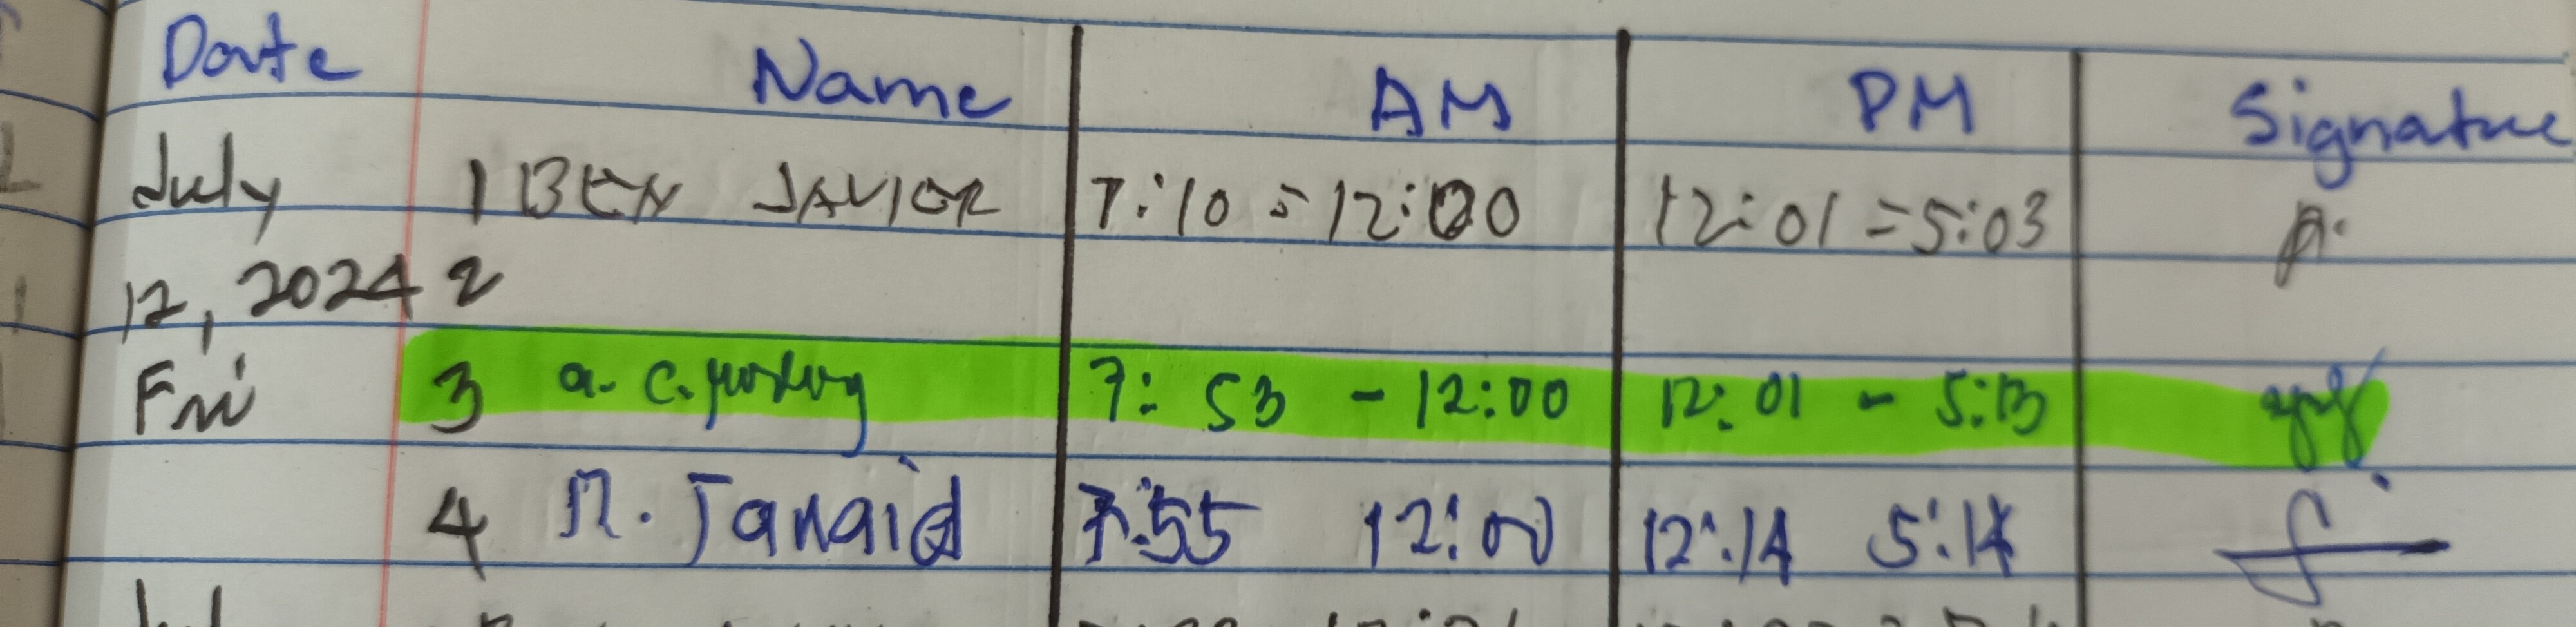 Date Name AM PM Signature
July 1 BEN JAVIER 7:10 = 12:00 12:01 = 5:03
12, 2024 2
Fri 3 a. c. 7: 53 - 12:00 12:01 - 5:13
4 7:55 12:00 12:14 5:14